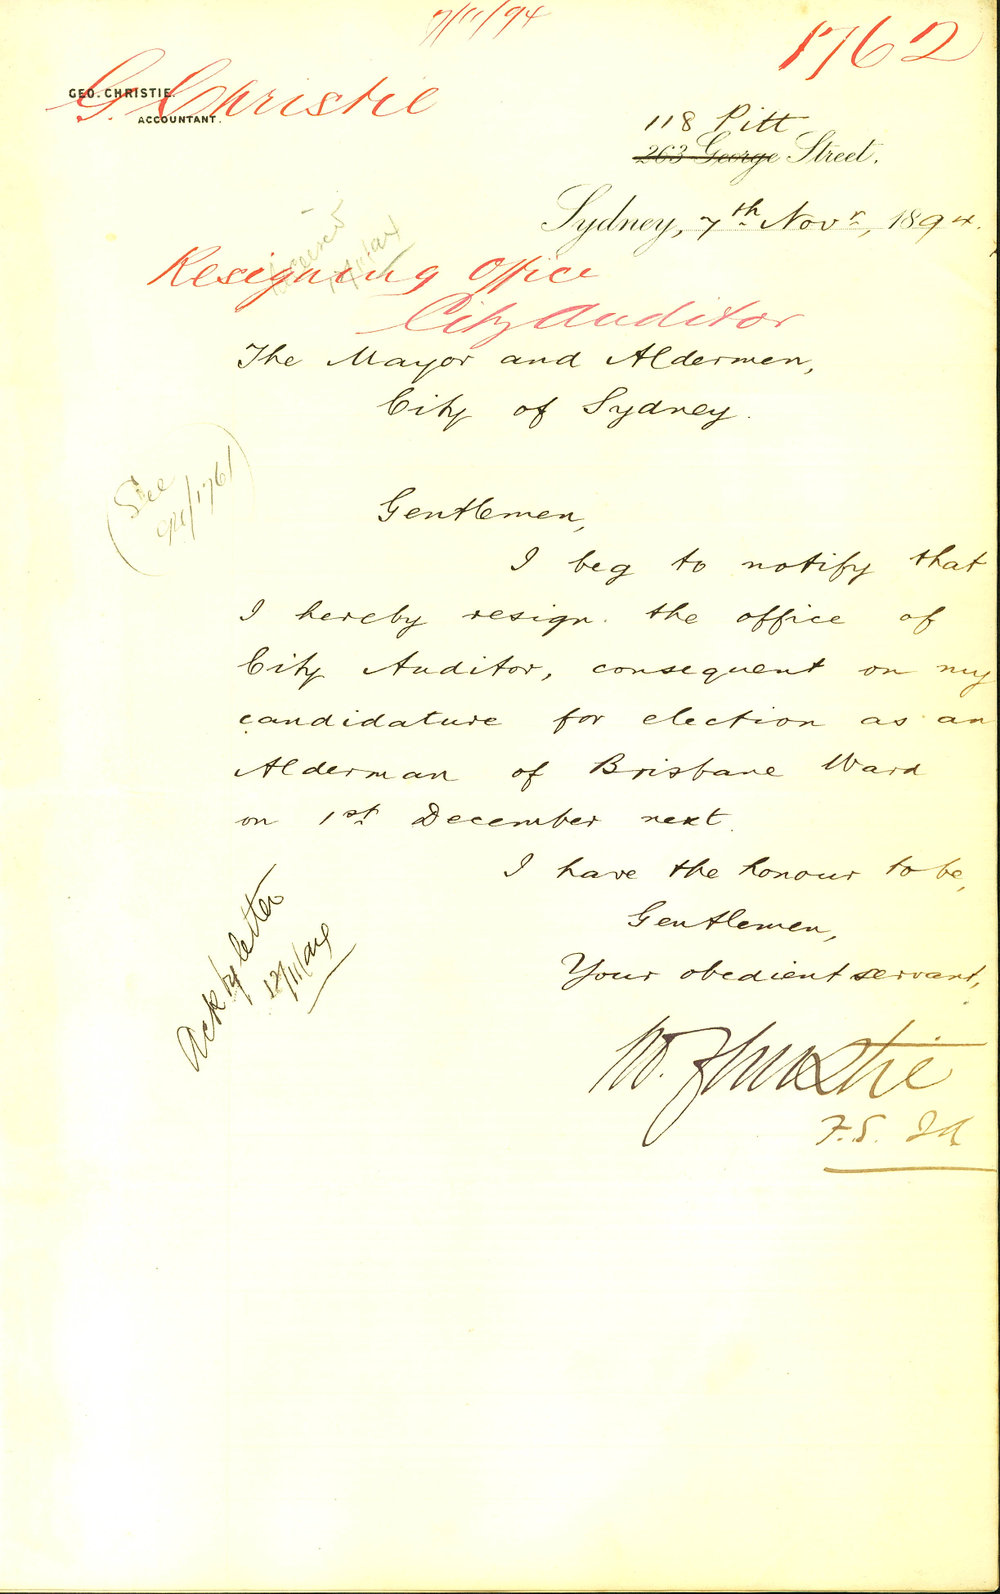 7/11/94
1762
GEO. CHRISTIE.
G. Christie
ACCOUNTANT.
118 Pitt
263 George Street.
Sydney, 7th Novr, 1894.
Resigning Office
City Auditor
The Mayor and Aldermen,
City of Sydney.
(See
94/1761)
Gentlemen,
I beg to notify that
I hereby resign the office of
City Auditor, consequent on my
candidature for election as an
Alderman of Brisbane Ward
on 1st December next.
I have the honour to be,
Gentlemen,
Your obedient servant,
Christie
F.S. IA
Ack by letter
12/11/94